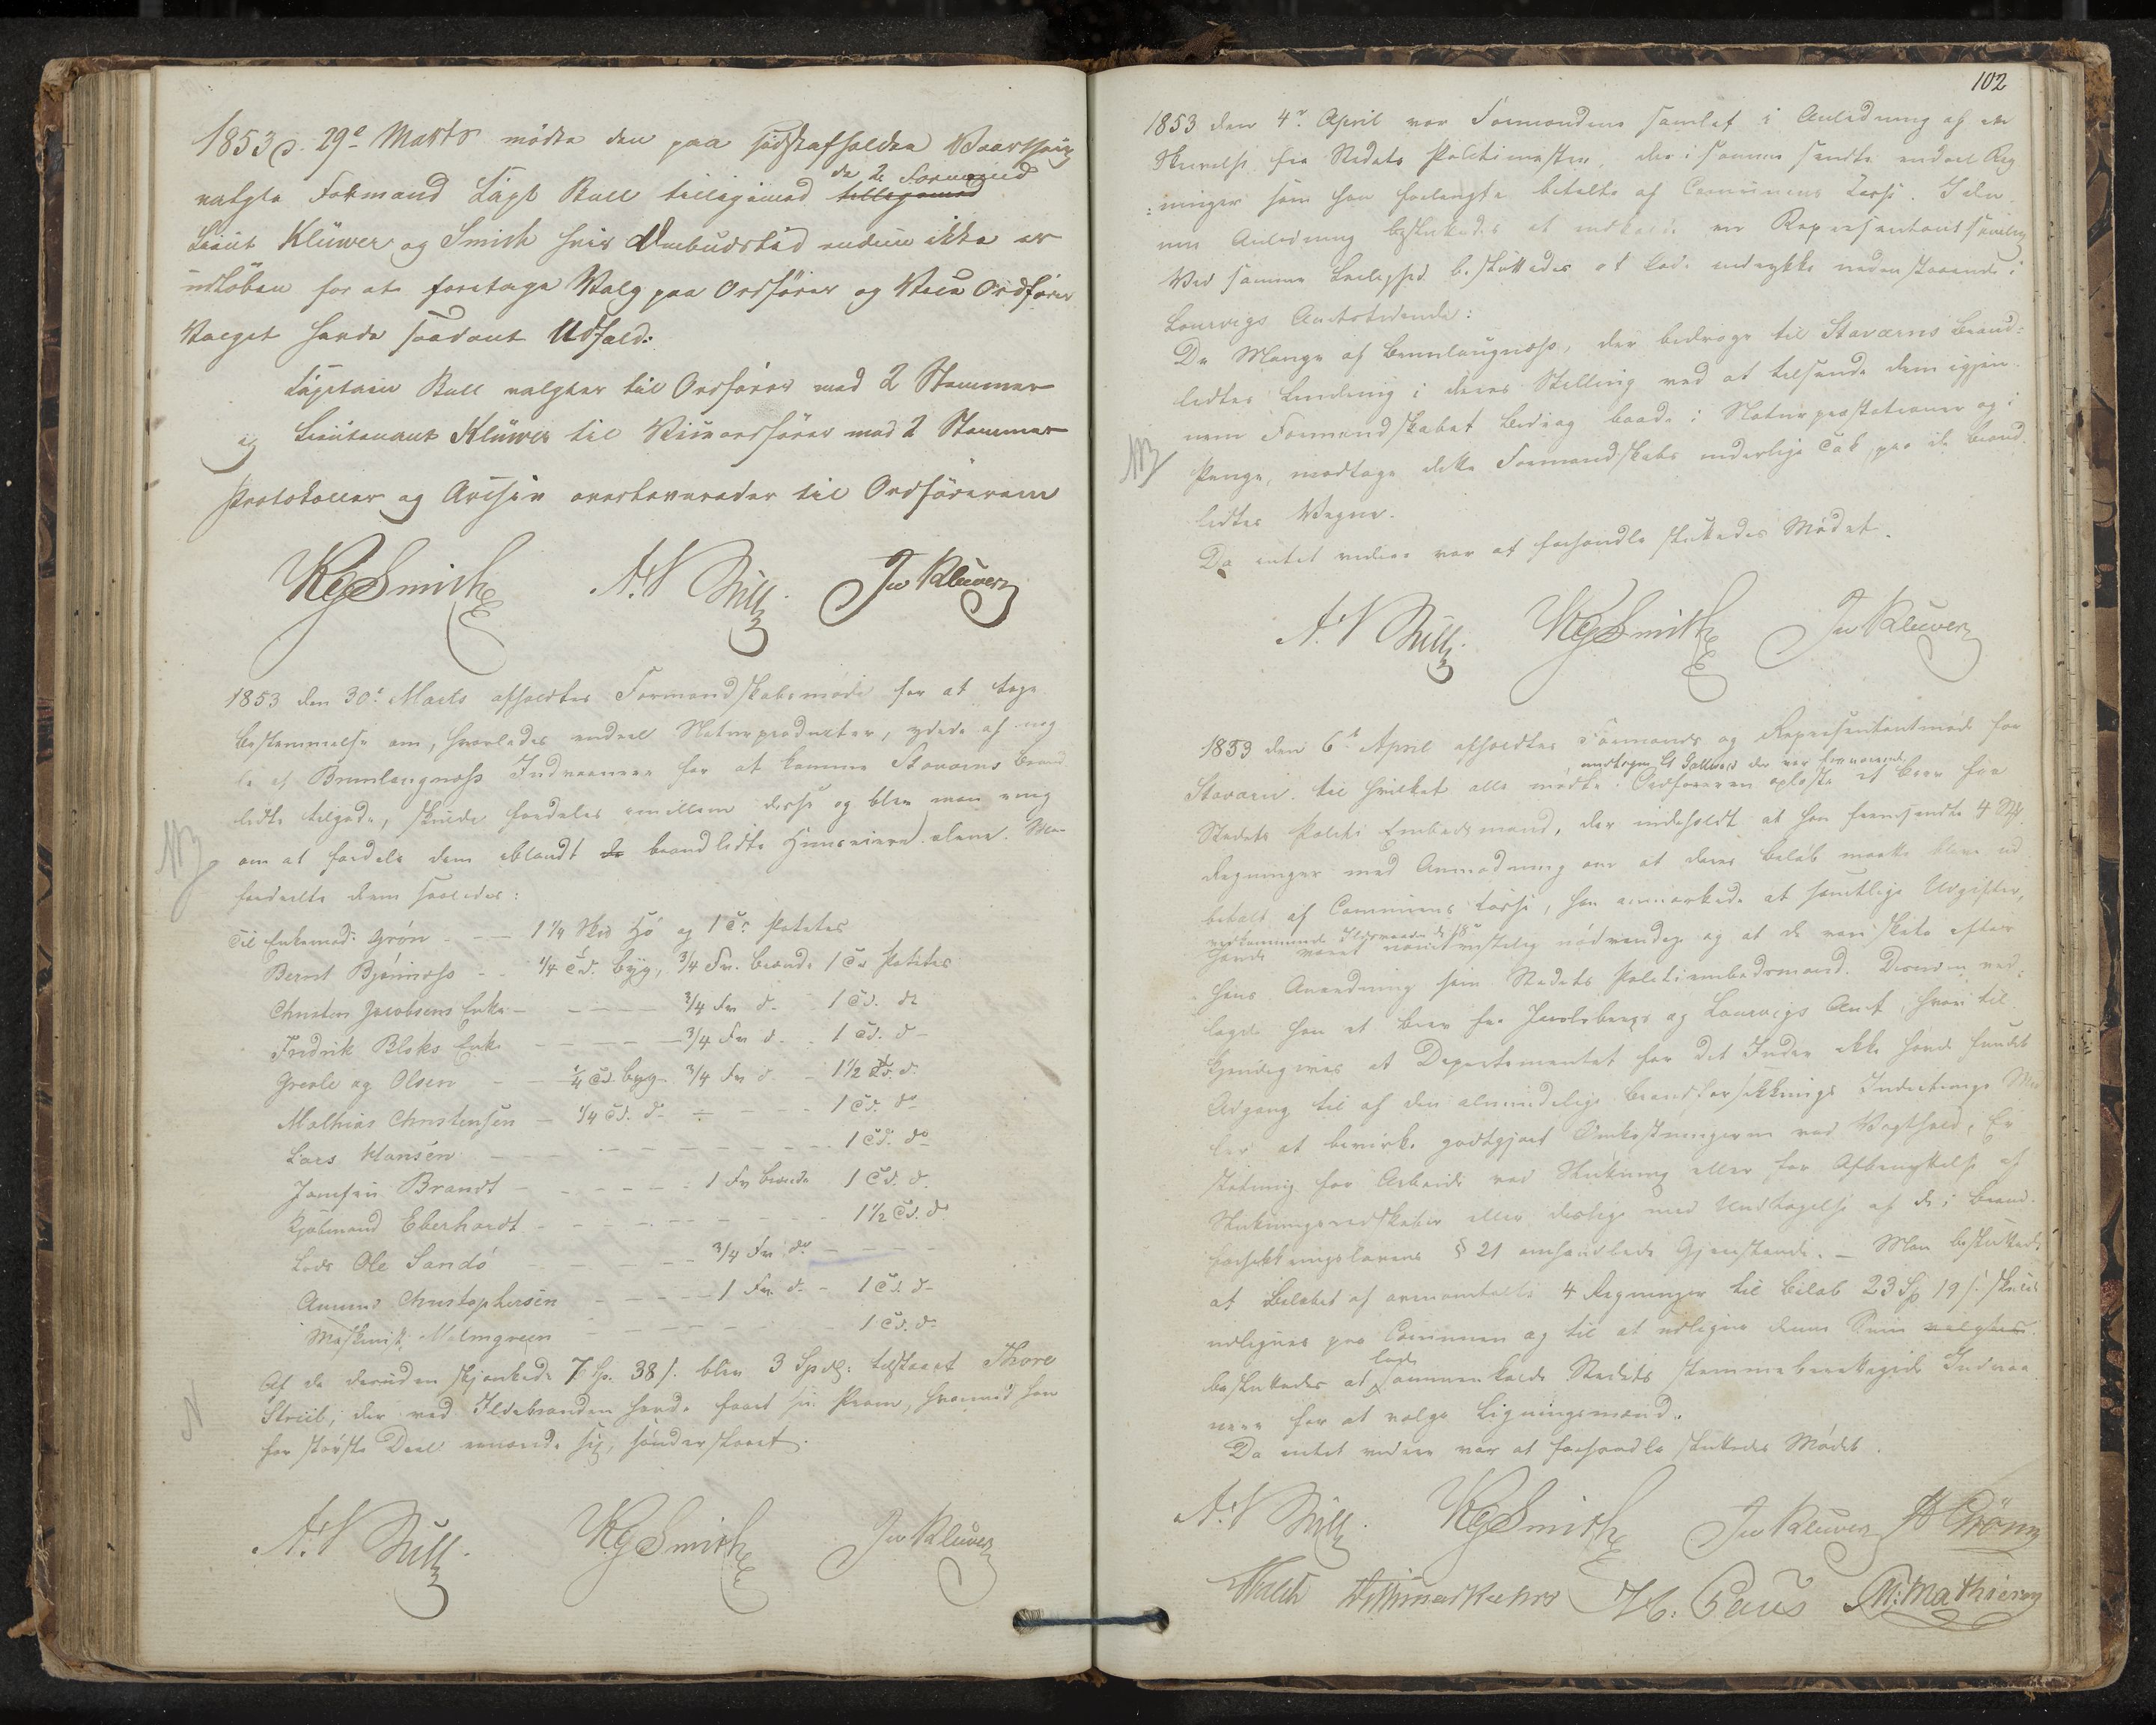 1853 d. 29de Marts mödte den paa sidstafholden Vaarthing
de 2de Formænd
valgte Formand Capt Bull tilligemed tilligemed
Lieut Klüwer og Smith hvis Ombudstid endnu ikke er
udlöben for at foretage Valg paa Ordförer og Vice Ordförer
Valget havde saadant Udfald:
Capitain Bull valgtes til Ordförer med 2 Stemmer
og Lieutenant Klüwer til Viceordförer med 2 Stemmer
Protokoller og Archiv overleveredes til Ordföreren
Smith A. Bull Klüwer
1853 den 30te Marts afholdtes Formandskabsmöde for at tage
Bestemmelse om, hvorledes endeel Naturproducter, ydede af nog
le af Brunlaugnæss Indvaanere for at komme Staværns Brand
lidte tilgode, skulde fordeles imellem disse og blev man enig
om at fordele dem iblandt de brandlidte Huuseiere alene. Man
fordeelte dem saaledes:
NB
Til Enkemad. Grön - - - 1 1/4 Skd Hö og 1 Td. Potetes
Bernt Bjönnæss - - 1/4 Td. Byg, 3/4 Fv. Brænde 1 Td. Potetes
Christen Jacobsens Enke - - - - - 3/4 Fv d. - 1 Td. do
Fredrik Bloks Enke - - - - - 3/4 Fv d. - 1 Td. do
Greole og Olsen - - 1/4 Td. Byg - 3/4 Fv d. - 1 1/2 Td. d.
Mathias Christensen - 1/4 Td. do - - - - 1 Td. do
Lars Hansen - - - - - - - - 1 Td. do
Jomfru Brandt - - - - - 1 Fv Brænde 1 Td. d.
Kjöbmand Eberhardt - - - - - - - 1 1/2 Td. do
Lods Ole Sandö - - - - - 3/4 Fv do - - - -
Amund Christophersen - - - - - 1 Fv. d. - 1 Td. do
Maskinist Malmgreen - - - - - - - 1 Td. do
Af de desuden skjænkede 7 Sp. 38 s. blev 3 Spdlr. tilstaaet Thore
Strüb, der ved Ildebranden havde faaet sin Pram, hvormed han
for störste Deel ernærede sig, sönderskaaret.
N
A. Bull Smith Klüwer
102
1853 den 4de April var Formændene samlet i Anledning af en
Skrivelse fra Stedets Politimester, der i samme sendte endeel Reg
ninger som han forlangte betalte af Communens Casse. I den
nen Anledning besluttedes at indkalde en Repræsentantsamling
Ved samme Leilighed besluttedes at lade indrykke nedenstaaende i
Laurvigs Amtstidende:
De Mange af Brunlaugnæss, der bidroge til Staværns Brand-
lidtes Lindring i deres Stilling ved at tilsende dem igjen-
nem Formandskabet Bidrag baade i Naturpræstationer og i
Penge, modtage dette Formandskabs inderlige Tak paa de Brand-
lidtes Vegne.
NB
Da intet videre var at forhandle sluttedes Mödet.
A. Bull Smith Klüwer
1853 den 6te April afholdtes Formands og Repræsentantmöde for
undtagen Lt der var fraværende
Staværn til hvilket alle mödte. Ordföreren oplæste et Brev fra
Stedets Politi Embedsmand, der indeholdt at han fremsendte 4 St.
Regninger med Anmodning om at deres Belöb maatte blive ud
betalt af Communens Casse, han anmærkede at samtlige Udgifter,
vedkommende Ildsvaaden d. 18de
havde været nödvendige og at de vare skete efter
hans Anordning som Stedets Politiembedsmand. Desuden ved-
lagde han et Brev fra Jarlsbergs og Laurvigs Amt, hvori til-
kjendegives at Departementet for det Indre ikke havde fundet
Adgang til af den almindelige Brandforsikkrings Indretnings Mid
ler at bevirke godtgjort Omkostningerne ved Vagthold, Er
statning for Arbeide ved Slukning eller for Afbenyttelse af
Slukningsredskaber eller deslige med Undtagelse af de i Brand-
forsikkringslovens § 21 omhandlede Gjenstande. - Man besluttede
at Belöbet af ovenomtalte 4 Regninger til Belöb 23 Sp 19 s. skulde
udlignes paa Communen og til at udligne denne Sum valgtes
lade
besluttedes at sammenkalde Stedets stemmeberettigede Indvaa
nere for at vælge Ligningsmænd.
Da intet videre var at forhandle sluttedes Mödet.
A. Bull Smith Klüwer Grönn
H. Paus M: Mathiesen